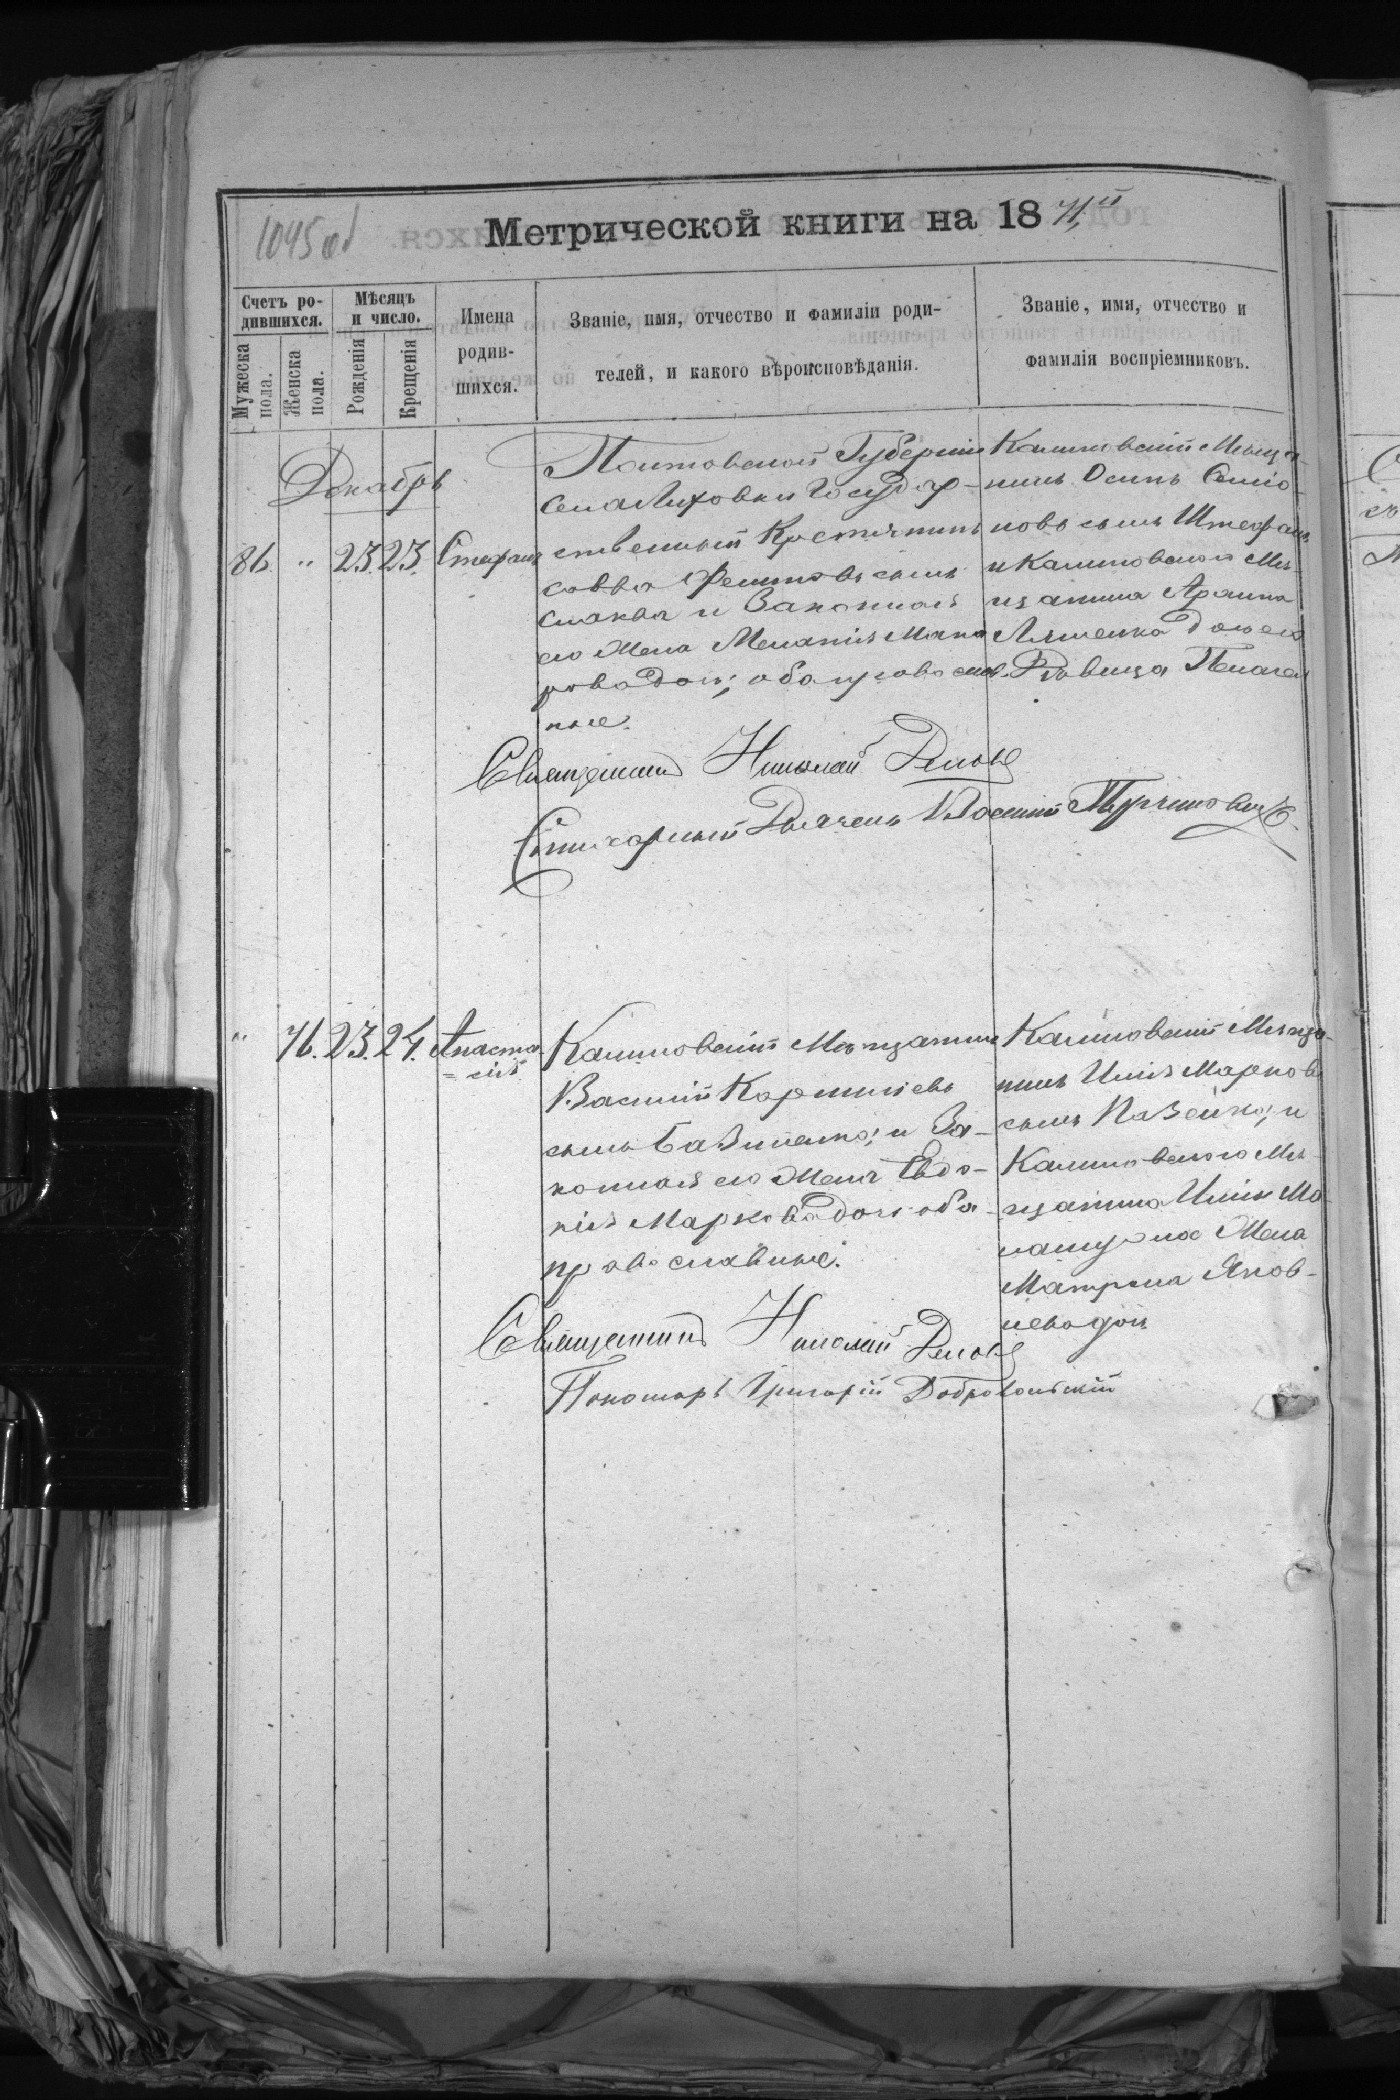 1045 об
Метрической книги на 18 71й
Счетъ ро-
дившихся.
Мужеска
пола.
Женска
пола.
Мѣсяцъ
и число.
Рожденія
Крещенія
Имена
родив-
шихся.
Званіе, имя, отчество и фамиліи роди-
телей, и какого вѣроисповѣданія.
Званіе, имя, отчество и
фамилія воспріемниковъ.
Декабрь
86 " 23. 23. Стефанъ
Полтавской Губерніи
села Лиховки Государ-
ственный Крестьянинъ
Савва сынъ
и Законная
его Жена Меланія Мака
рова дочь; оба православ-
ные.
Калиновскій Мѣща-
нинъ Осипъ Семіо-
новъ сынъ Штефанъ
и Калиновского Мѣ-
щанина
дочь его
Дѣвица Пелагея
Священникъ Николай
Дьячекъ Василій
" 76. 23. 24. Анаста
=сія
Калиновскій Мѣщанинъ
Василій Корниліевъ
сынъ и За-
конная его Жена Евдо-
кія Маркова дочь оба
православные.
Калиновскій Мѣща-
нинъ Илія Марковъ
сынъ и
Калиновского Мѣ-
щанина Иліи
Жена
Матрона Яков-
лева дочь
Священникъ Николай
Пономарь Григорій Добровольскій